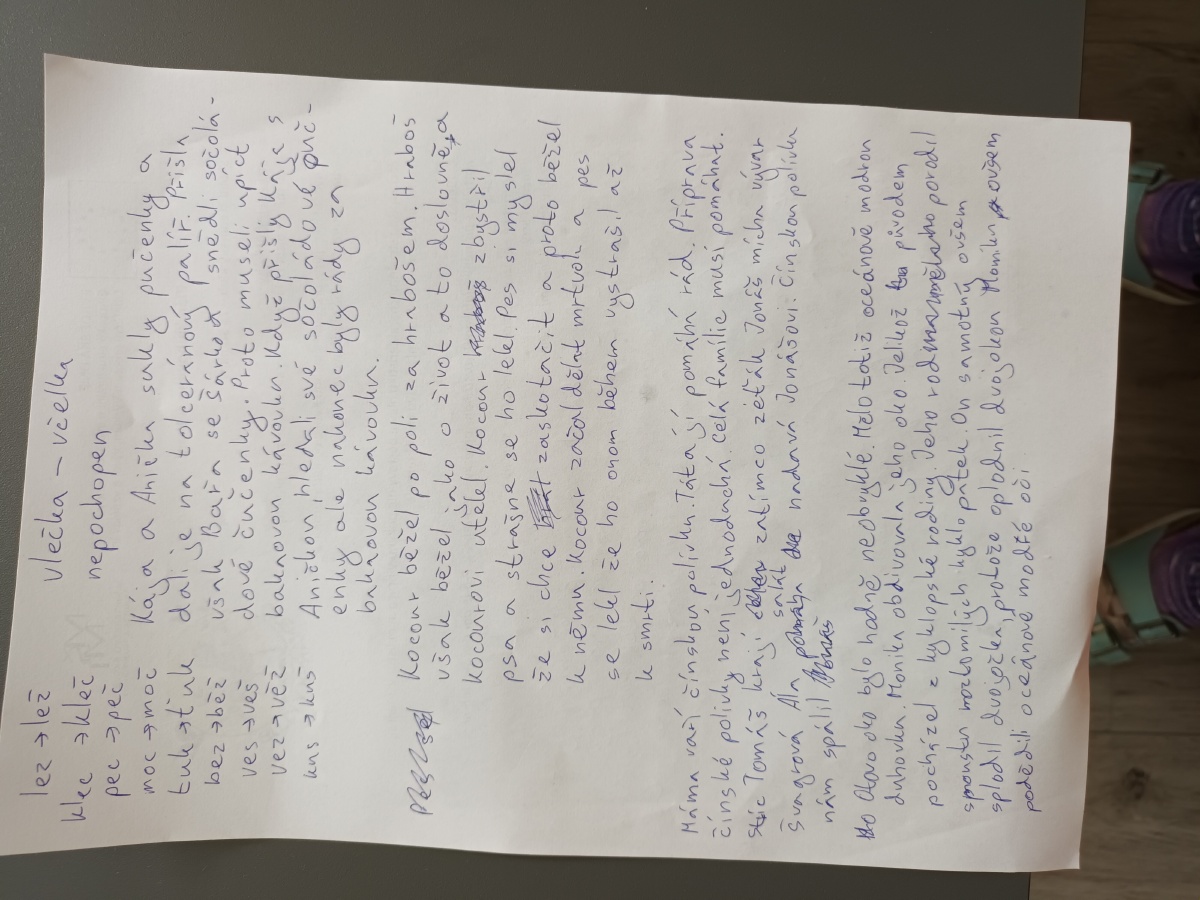 lez → lež
klec → kleč
pec → peč
moc → moč
tuk → ťuk
bez → běž
ves → veš
vez → věž
kus → kuš
vlečka – včelka
nepochopen
Kája a Anička sukly pučenky a
dali je na tolceránový palíř. Přišla
však Bařa se šárkou snědli sočolá-
dové čučenky. Proto museli upíct
bakanovou kávovku. Když přišly Kája s
Aničkou hledali své sočoládové puč-
enky ale nakonec byly rády za
bakavou kávovku.
Kocour běžel po poli za hrabošem. Hraboš
však běžel jako o život a to doslovně, a
kocourovi utěkl. Kocour zbystřil
psa a strašně se ho lekl. Pes si myslel
že si chce zaskotačit a proto běžel
k němu. Kocour začal dělat mrtvolu a pes
se lekl že ho onom během vystrašil až
k smrti.
Máma vaří čínskou polívku. Táta jí pomáhá rád. Příprava
čínské polivky není jednoduchá. Celá famílie musí pomáhat.
Tomáš krají zatímco zeťák Jonáš míchá vývar
Švagrová Áľa salát nadává Jonášovi. Čínskou polívku
nám spálil
Otovo oko bylo hodně neobvyklé. Mělo totiž oceánově modrou
duhovku. Monika obdivovala jeho oko. Jelikož původem
pocházel z kyklopské rodiny. Jeho rodina uměleho porodil
spoustu mrňomilých kyklopátek. On samotný ovšem
splodil dvojočka, protože oplodnil dvojokou Moniku ovšem
podědili oceánově modré oči.